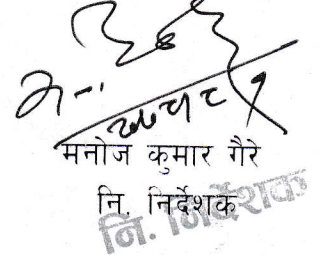 मनोज कुमार गैरे
नि. निर्देशक
नि. निर्देशक